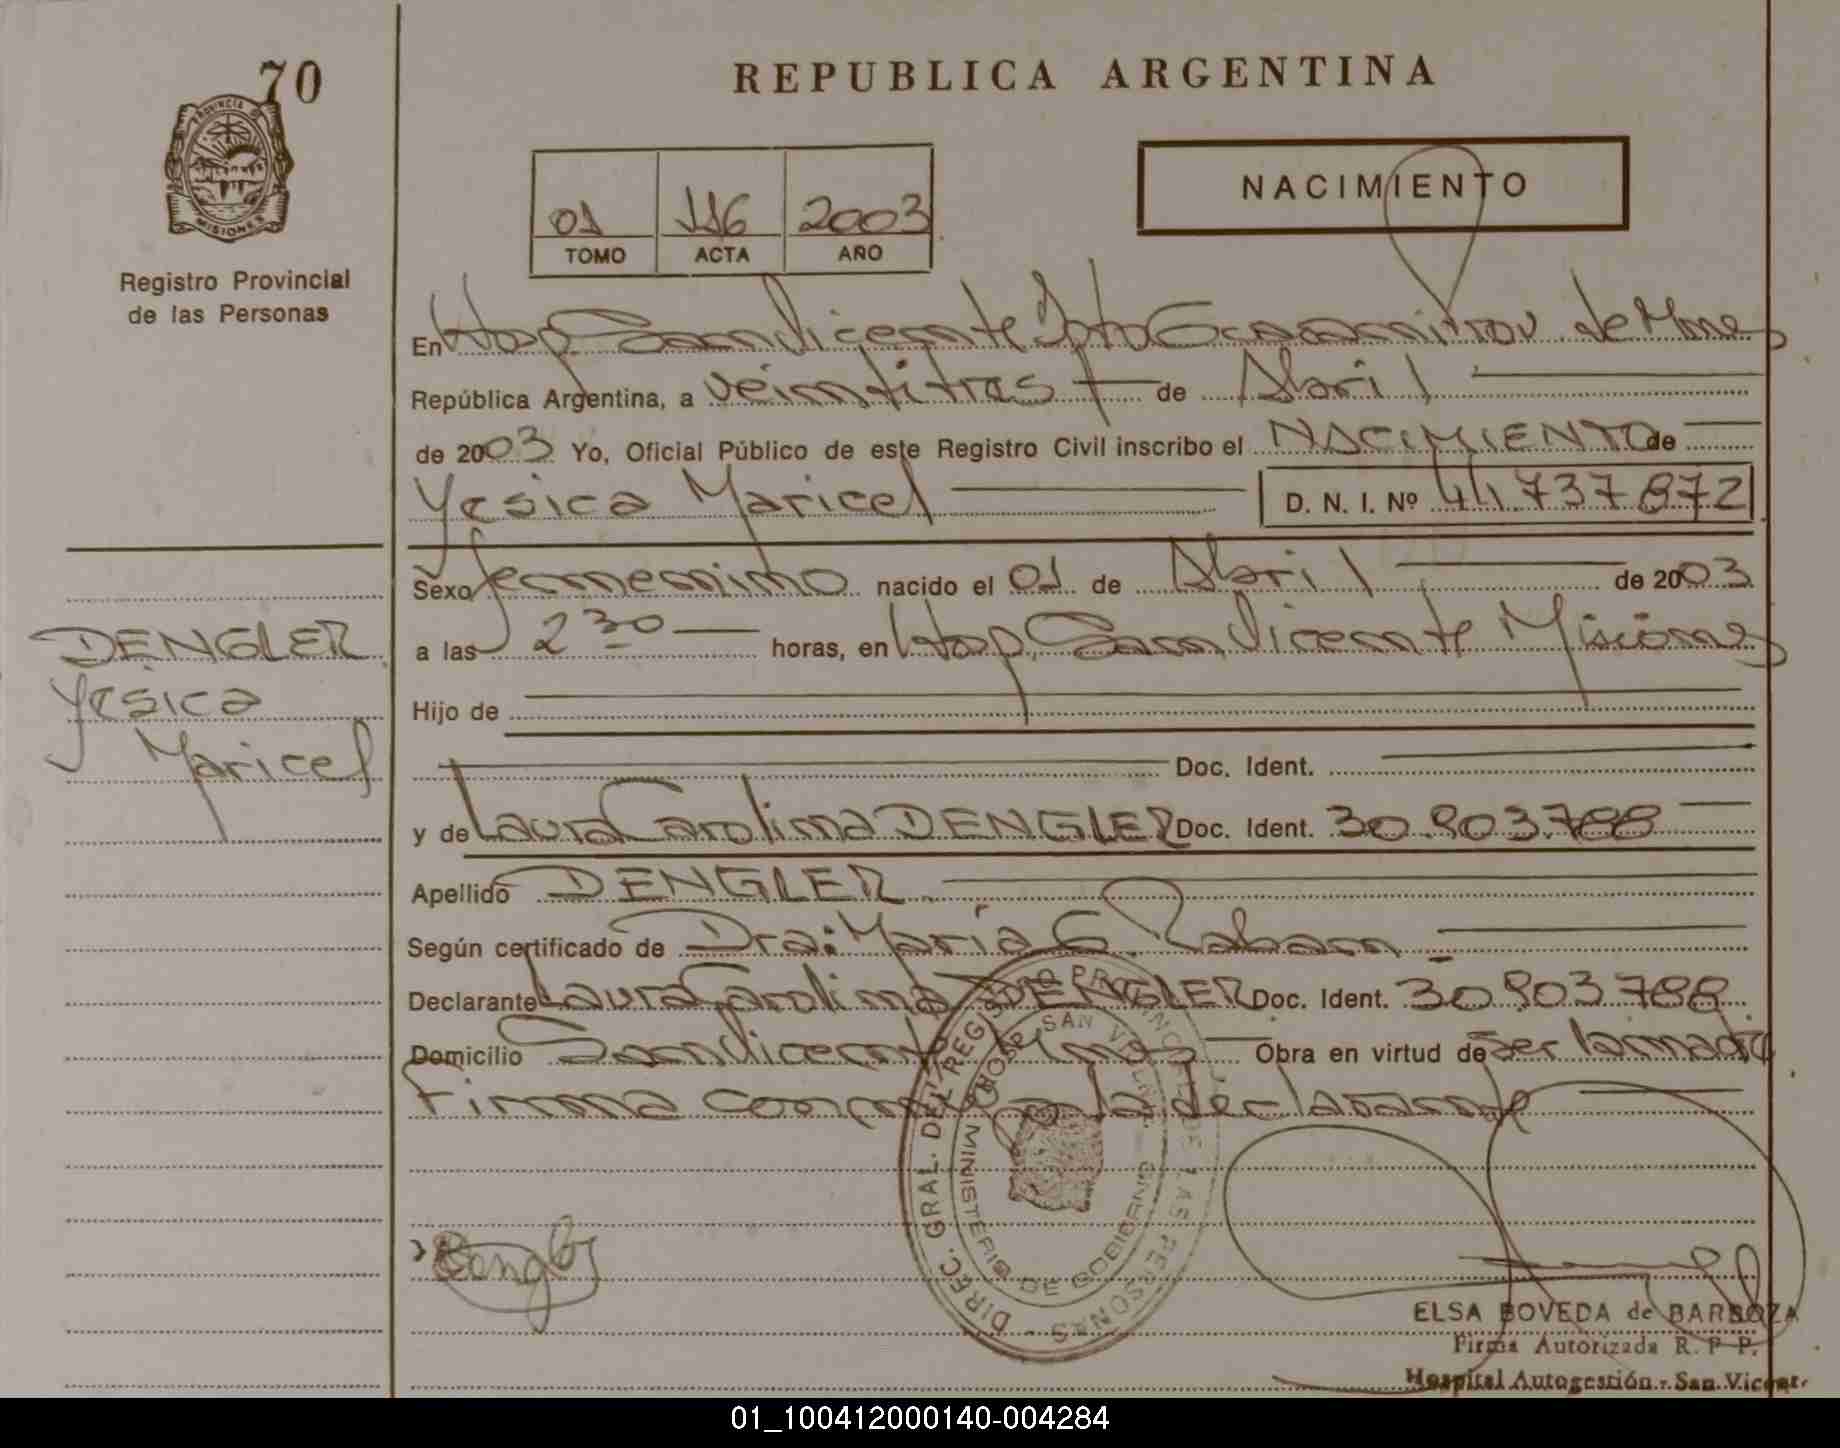 70
PROVINCIA DE
MISIONES
Registro Provincial
de las Personas
REPUBLICA ARGENTINA
01 116 2003
TOMO ACTA AÑO
NACIMIENTO
En Hosp San Vicente Dpto Guaraní Prov. de Mnes
República Argentina, a veintitres de Abril
de 2003 Yo, Oficial Público de este Registro Civil inscribo el NACIMIENTO de
Yesica Maricel D. N. I. Nº 44.737.872
Sexo femenino nacido el 01 de Abril de 2003
a las 2 30 horas, en Hosp. San Vicente Misiones
Hijo de
Doc. Ident.
y de Laura Carolina DENGLER Doc. Ident. 30.903.788
Apellido DENGLER
Según certificado de Dra: María G
Declarante Laura Carolina DENGLER Doc. Ident. 30.903.788
Domicilio San Vicente Mnes Obra en virtud de Ser la madre
Firma conmigo la declarante
DENGLER
Yesica
Maricel
DIREC. GRAL. DEL REGISTRO PROVINCIAL DE LAS PERSONAS
MINISTERIO DE GOBIERNO
SAN VICENTE
ELSA BOVEDA de BARBOZA
Firma Autorizada R. P. P.
Hospital Autogestión - San Vicente
01_100412000140-004284